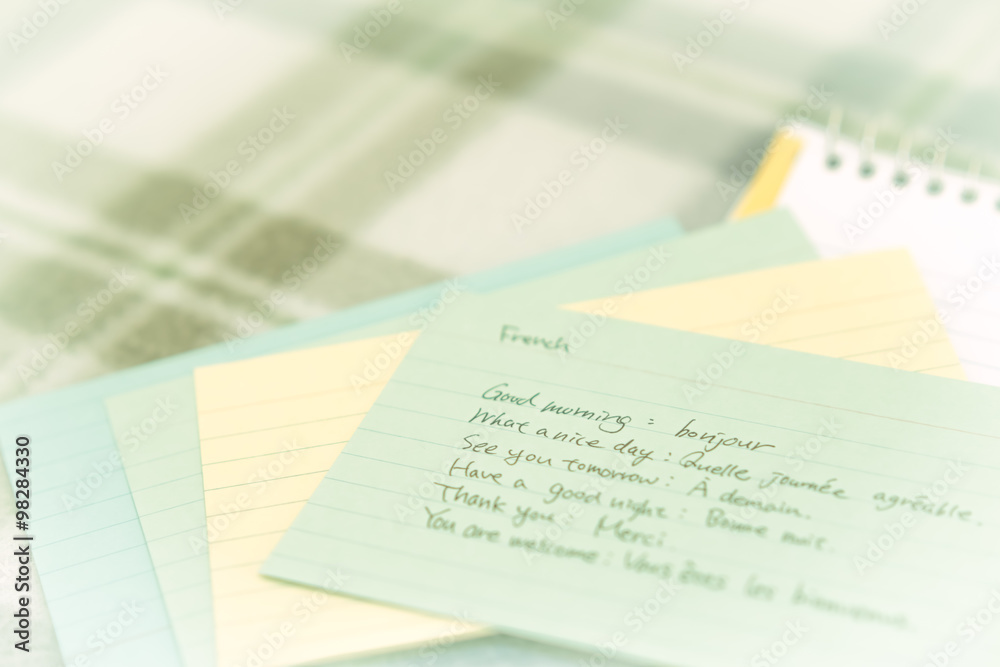 French
Good morning : bonjour
What a nice day : Quelle journée agréable.
See you tomorrow : À demain.
Have a good night : Bonne nuit.
Thank you : Merci
You are welcome : Vous êtes les bienvenue.
Adobe Stock | #98284330